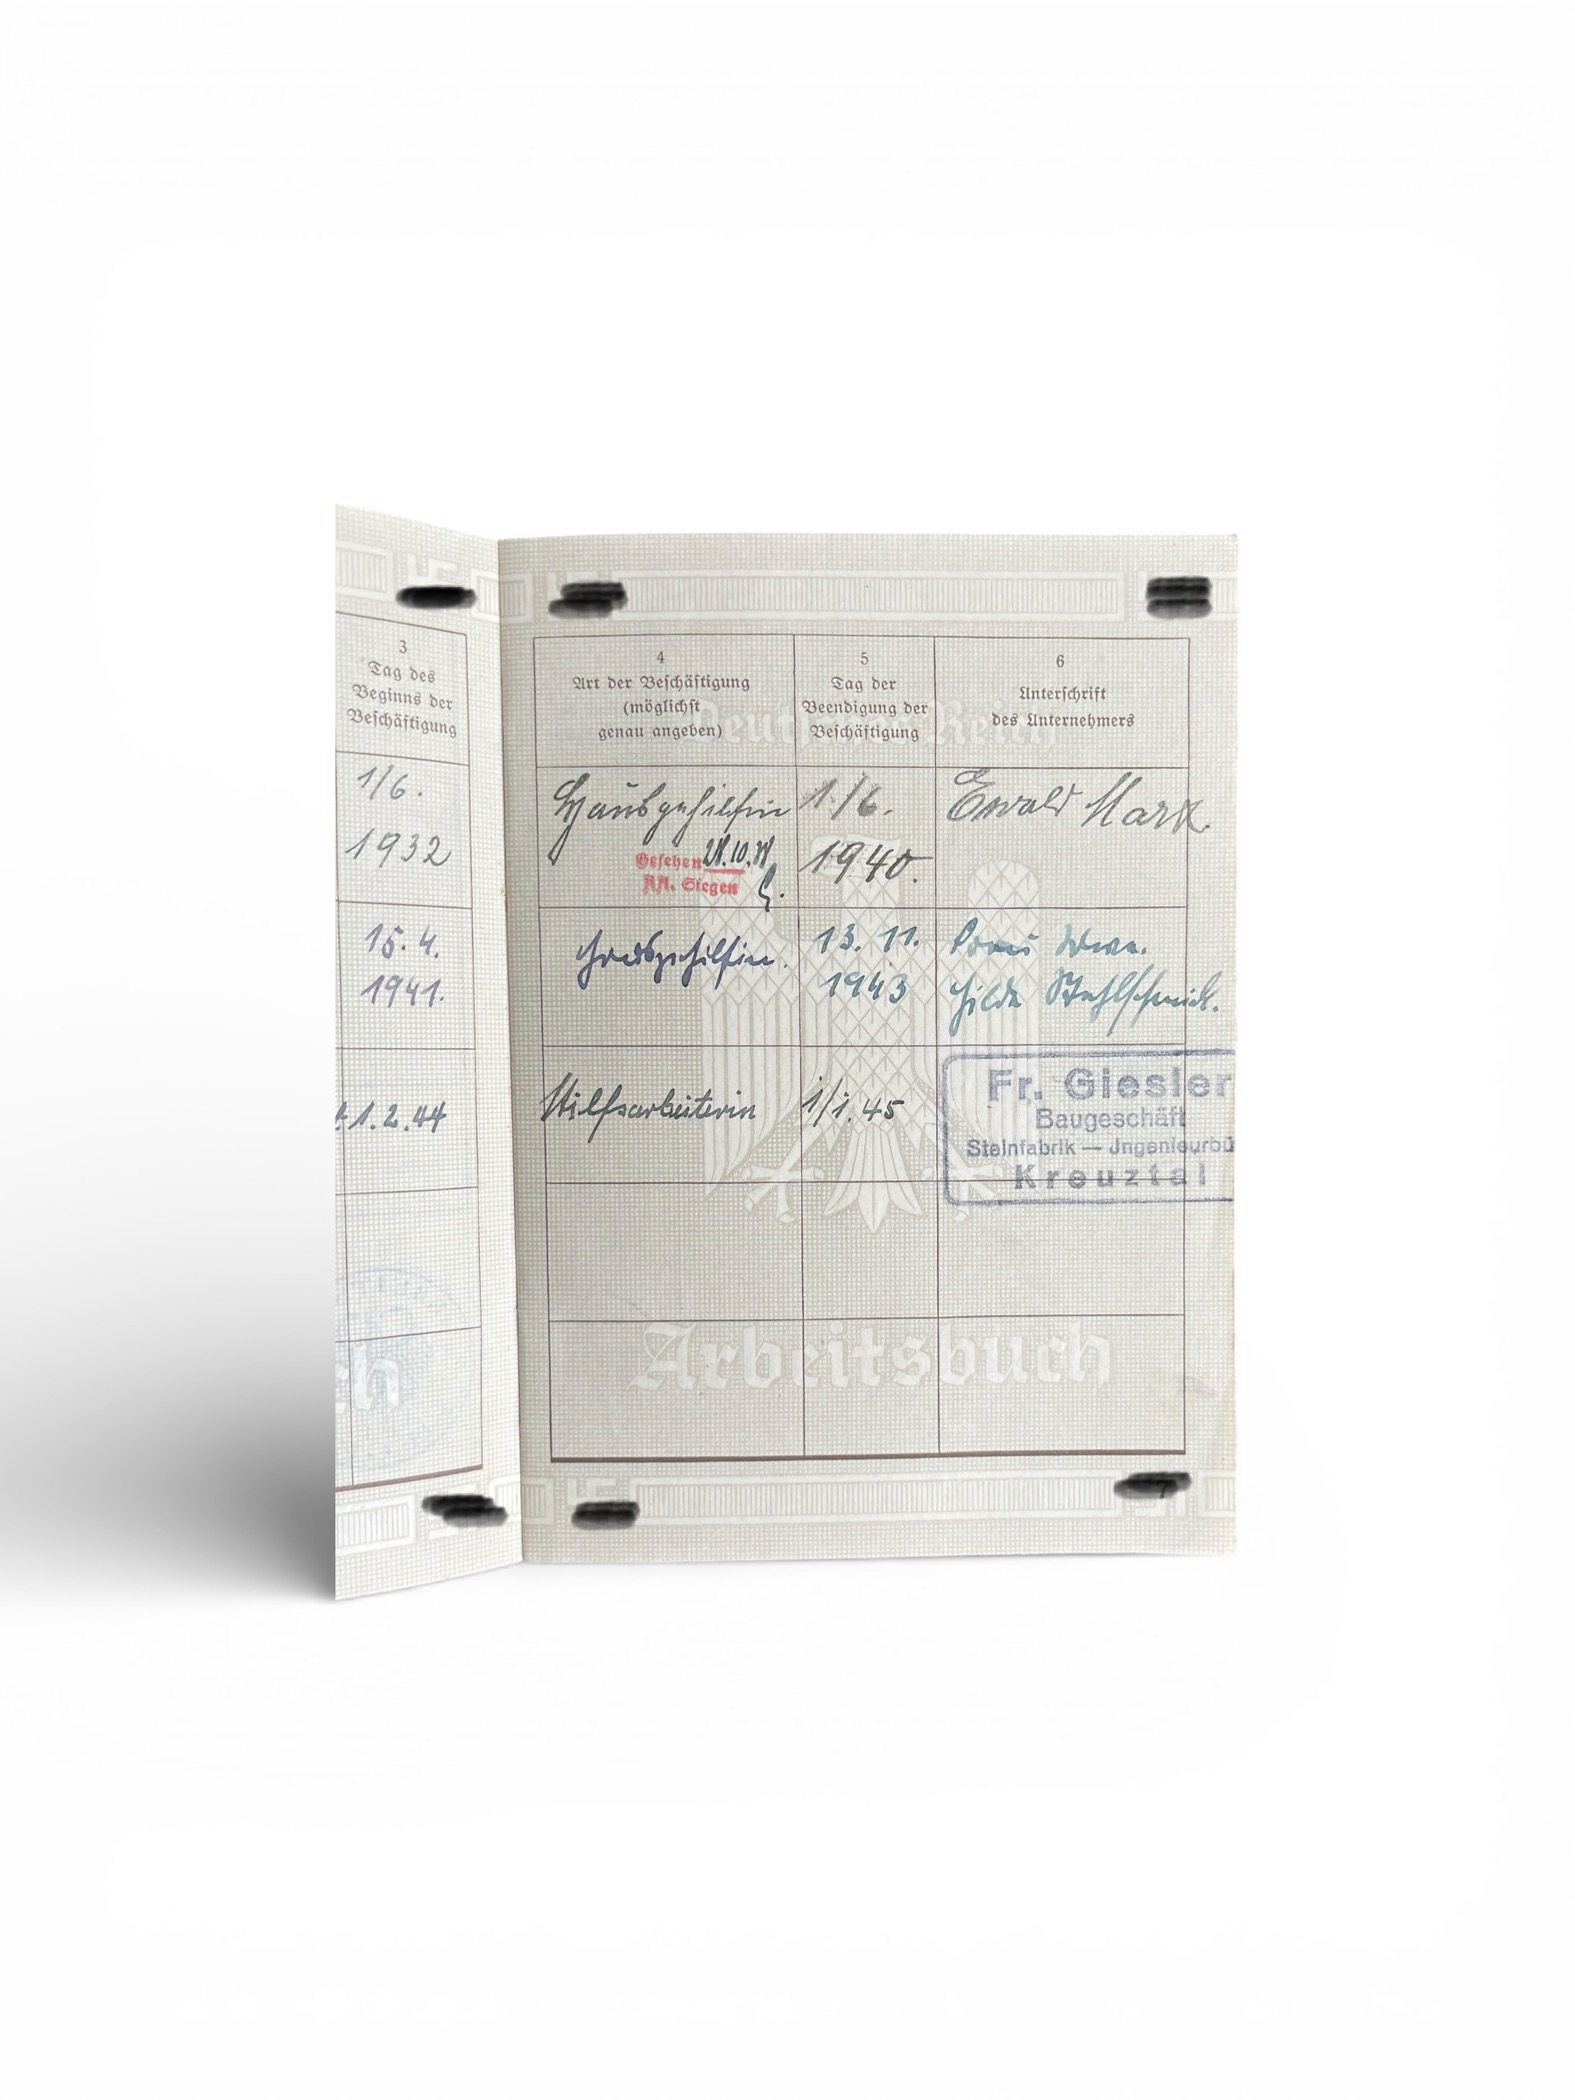 3
Tag des
Beginns der
Beschäftigung
1/6.
1932
15. 4.
1941.
1.2.44
ch
4
Art der Beschäftigung
(möglichst
genau angeben)
5
Tag der
Beendigung der
Beschäftigung
6
Unterschrift
des Unternehmers
Deutsches Reich
Hausgehilfin
1./6.
1940.
Ewald Mark
Gesehen 21.10.
AA. Siegen
Hausgehilfin.
13. 11.
1943
Hilde Stahlschmidt.
Hilfsarbeiterin
1/1.45
Fr. Giesler
Baugeschäft
Steinfabrik — Jngenieurbü
Kreuztal
Arbeitsbuch
7